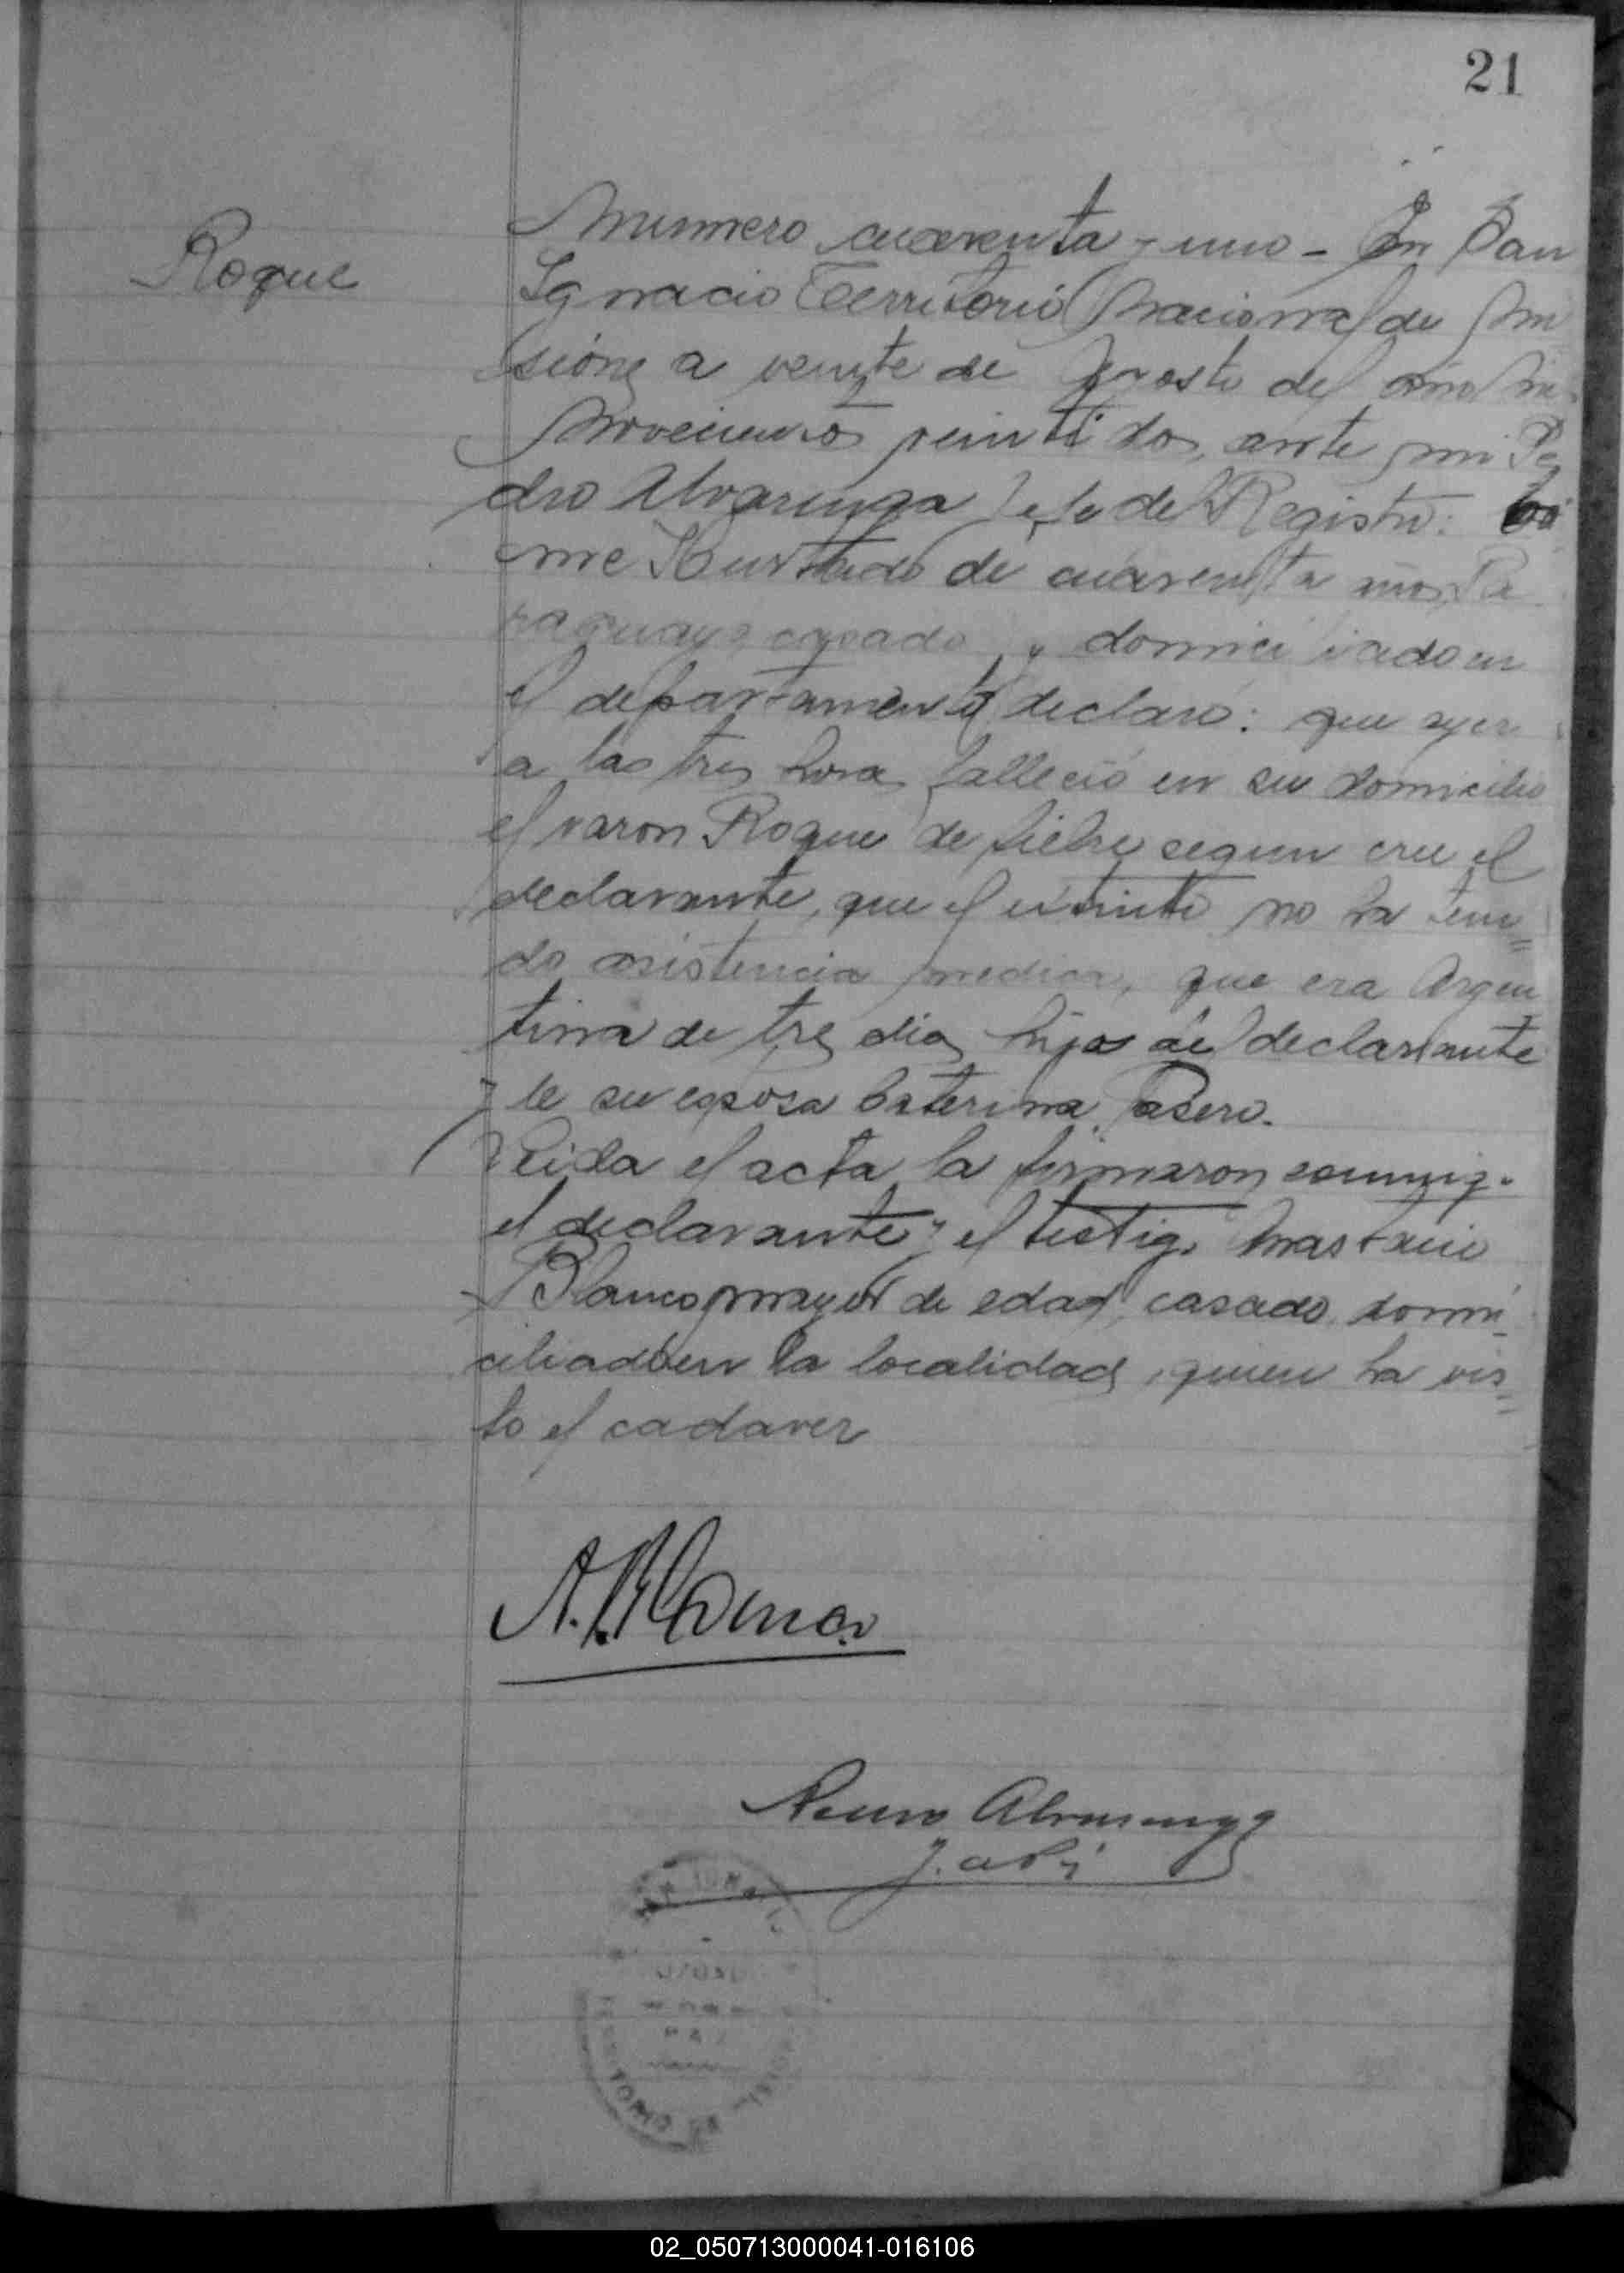 21
Roque
Nummero cuarenta y uno - En San
Ignacio Territorio Nacional de Mi
sione a veinte de Agosto del año mi
Novecientos veinti dos, ante mi Pe
dro Alvarenga Jefe del Registro:
de cuarenta años Pa
raguayo casado y domiciliado en
el departamento declaró: que ayer
a las tres hora falleció en su domicilio
el varon Roque de fiebre segun cree el
declarante, que el extinto no ha teni=
do asistencia medica, que era Argen
tina de tres dia hijo del declarante
y de su esposa Caterina
Leida el acta la firmaron conmigo
el declarante y el testigo
Blanco mayor de edad, casado domi
ciliado en la localidad, quien ha vis=
to el cadaver
A. Blanco
Alvarenga
02_050713000041-016106